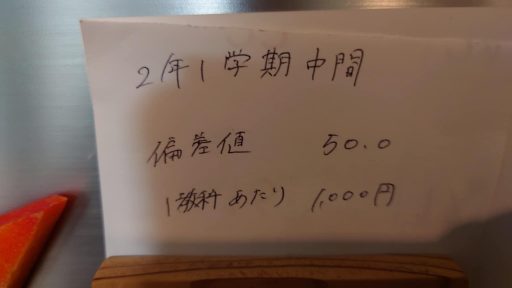 2年1学期中間
偏差値 50.0
1教科あたり 1,000円